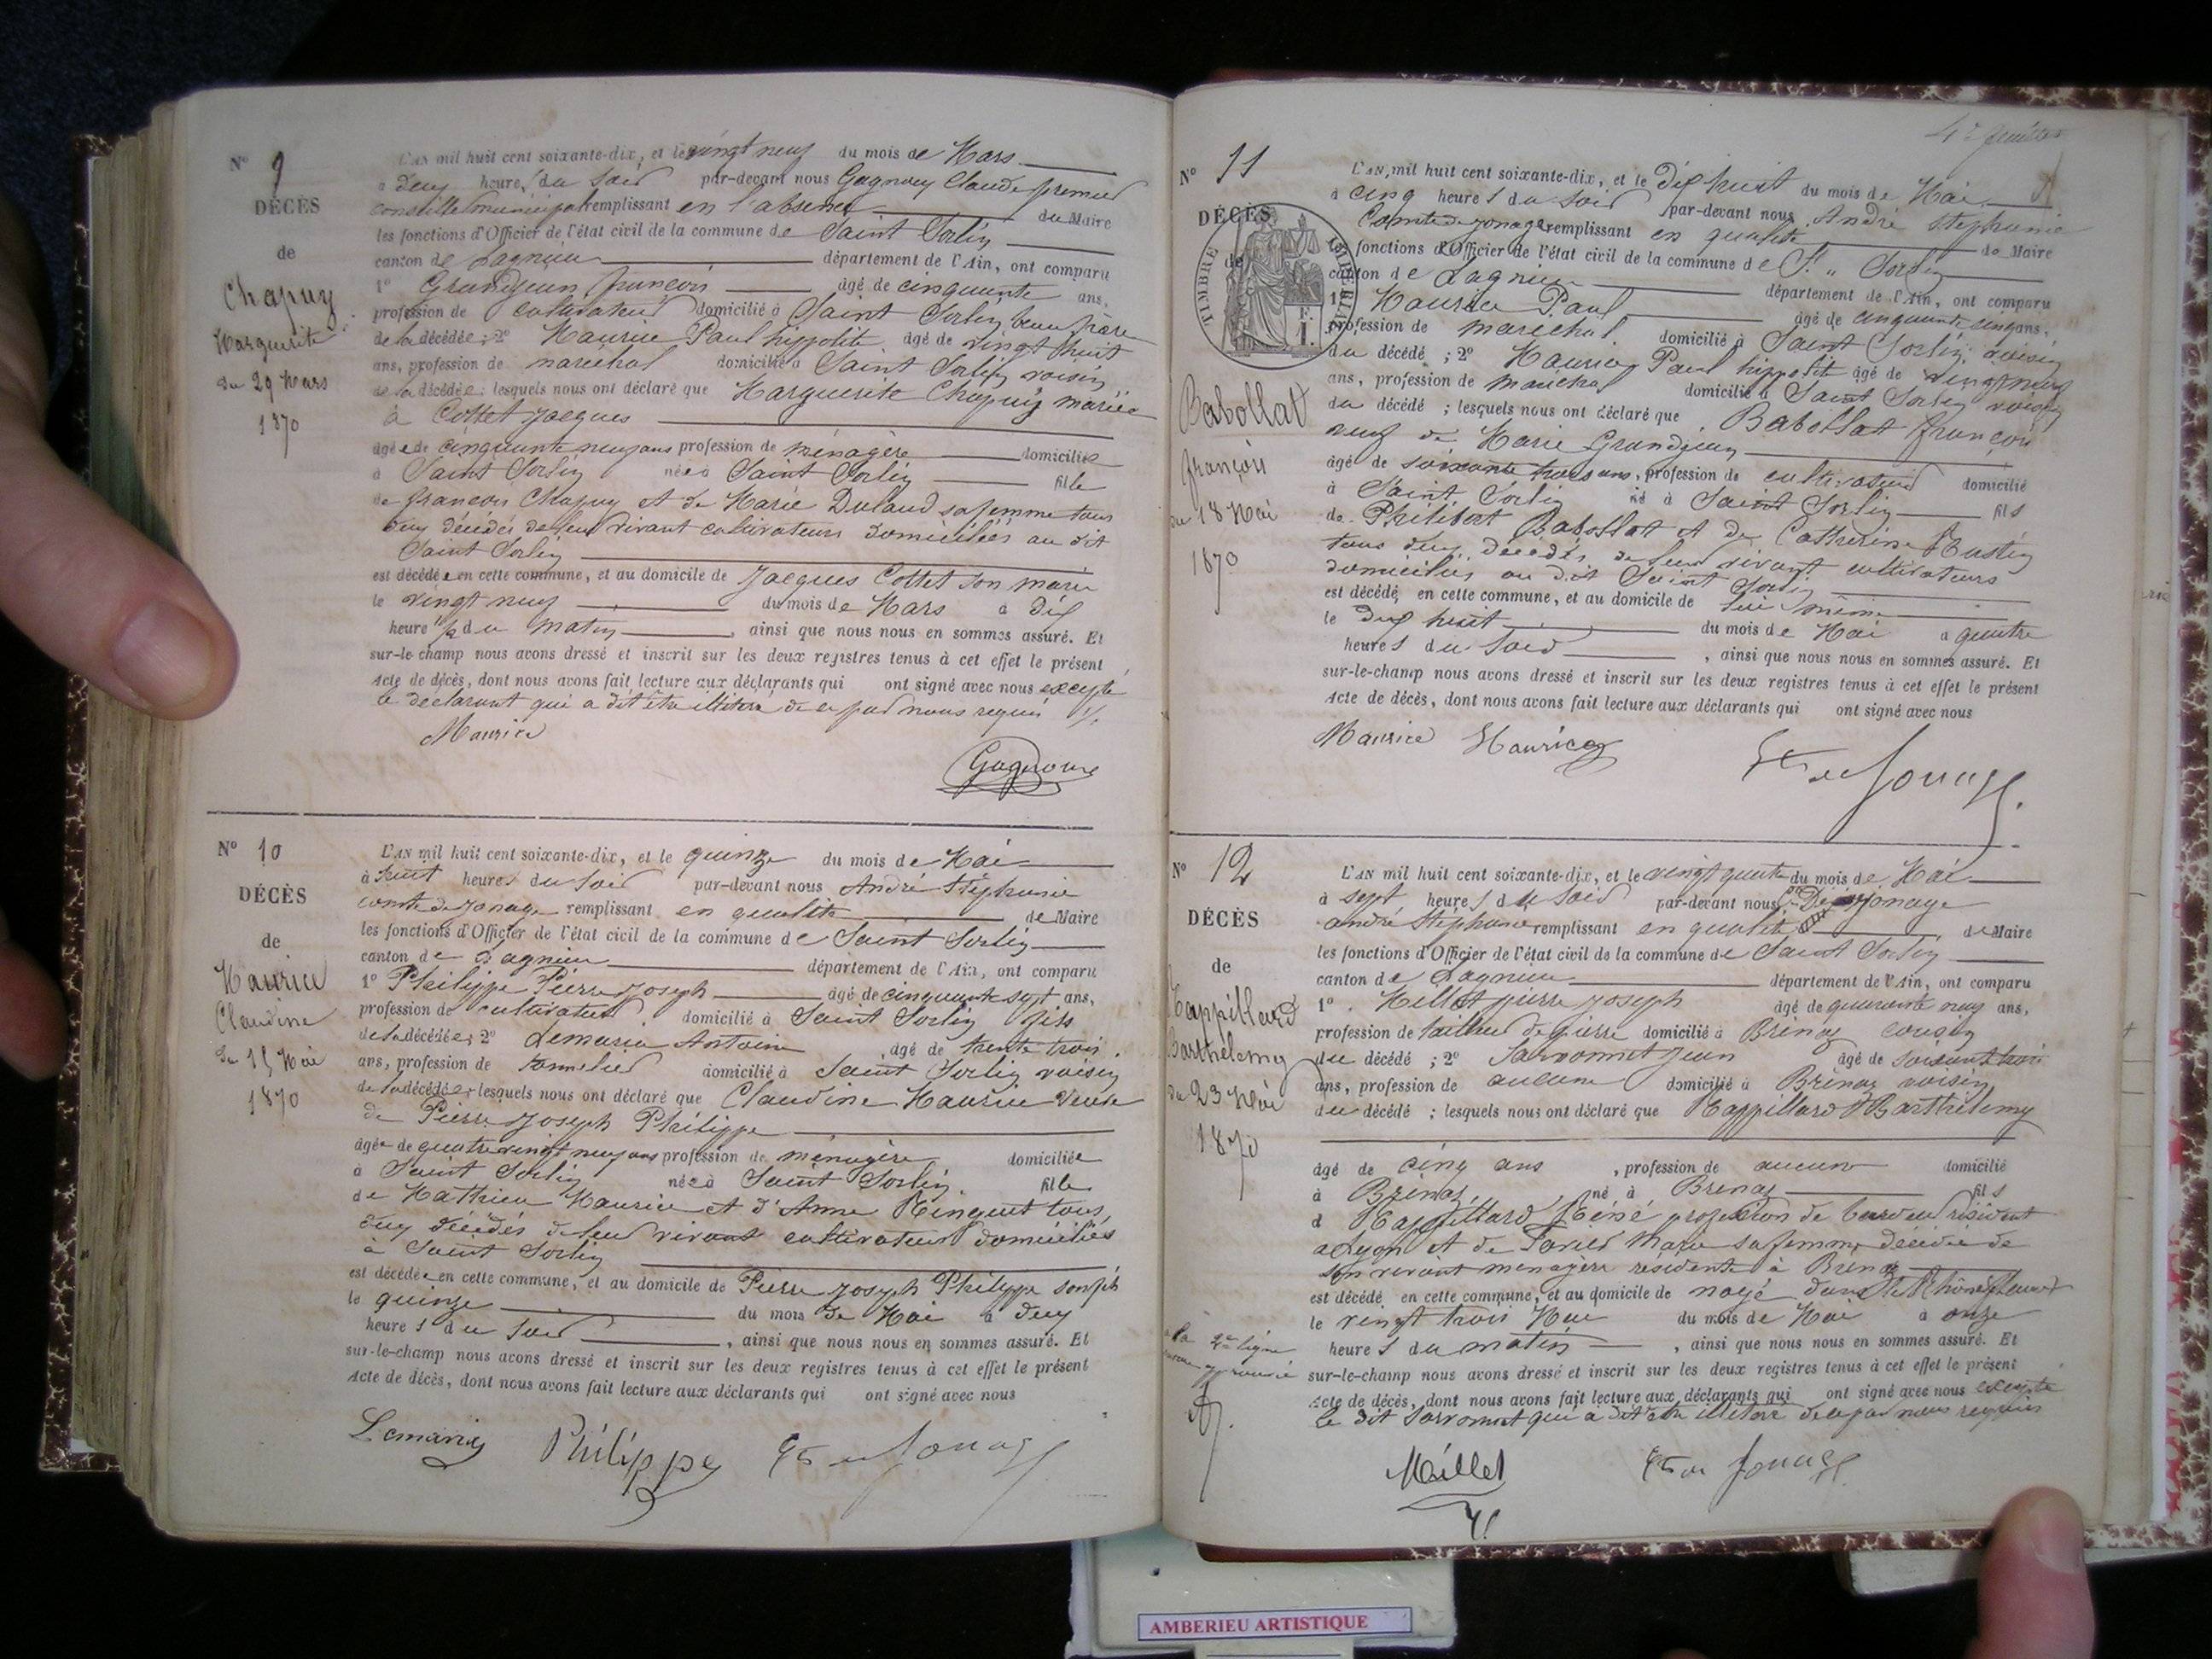 N° 9
DÉCÈS
de
Chapuy
Marguerite
du 29 Mars
1870
L'AN mil huit cent soixante-dix, et le vingt neuf du mois de Mars
à deux heures du soir par-devant nous Gagnoux Claude premier
conseiller municipal remplissant en l'absence du Maire
les fonctions d'Officier de l'état civil de la commune de Saint Sorlin
canton de Lagnieu département de l'Ain, ont comparu
1° Grandjean francois âgé de cinquante ans,
profession de cultivateur domicilié à Saint Sorlin beau frère
de la décédée; 2° Maurice Paul hippolite âgé de vingt huit
ans, profession de marechal domicilié à Saint Sorlin voisin
de la décédée; lesquels nous ont déclaré que Marguerite Chapuy mariée
à Cottet Jacques
âgée de cinquante neuf ans profession de ménagère domiciliée
à Saint Sorlin née à Saint Sorlin fille
de francois Chapuy et de Marie Dulaud sa femme tous
deux décédés de leur vivant cultivateurs domiciliés au dit
Saint Sorlin
est décédée en cette commune, et au domicile de Jacques Cottet son marie
le vingt neuf du mois de Mars à dix
heure ½ du matin, ainsi que nous nous en sommes assuré. Et
sur-le-champ nous avons dressé et inscrit sur les deux registres tenus à cet effet le présent
Acte de décès, dont nous avons fait lecture aux déclarants qui ont signé avec nous excepté
le déclarant qui a dit être illitéré de ce par nous requis
Maurice
Gagnoux
N° 10
DÉCÈS
de
Maurice
Claudine
du 15 Mai
1870
L'AN mil huit cent soixante-dix, et le quinze du mois de Mai
à huit heures du soir par-devant nous André Stéphanie
comte de Jonage remplissant en qualité de Maire
les fonctions d'Officier de l'état civil de la commune de Saint Sorlin
canton de Lagnieu département de l'Ain, ont comparu
1° Philippe Pierre Joseph âgé de cinquante sept ans,
profession de cultivateur domicilié à Saint Sorlin fils
de la décédée; 2° Lemarin Antoine âgé de trente trois
ans, profession de tonnelier domicilié à Saint Sorlin voisin
de la décédée; lesquels nous ont déclaré que Claudine Maurice veuve
de Pierre Joseph Philippe
âgée de quatre vingt neuf ans profession de ménagère domiciliée
à Saint Sorlin née à Saint Sorlin fille
de Mathieu Maurice et d'Anne Ringuet tous
deux décédés de leur vivant cultivateurs domiciliés
à Saint Sorlin
est décédée en cette commune, et au domicile de Pierre Joseph Philippe son fils
le quinze du mois de Mai à deux
heures du soir, ainsi que nous nous en sommes assuré. Et
sur-le-champ nous avons dressé et inscrit sur les deux registres tenus à cet effet le présent
Acte de décès, dont nous avons fait lecture aux déclarants qui ont signé avec nous
Lemarin Philippe Cte de Jonage
4e feuillet
N° 11
DÉCÈS
de
TIMBRE IMPÉRIAL
Babollat
françois
du 18 Mai
1870
L'AN mil huit cent soixante-dix, et le dix huit du mois de Mai
à cinq heures du soir par-devant nous André Stéphanie
Comte de Jonage remplissant en qualité de Maire
les fonctions d'Officier de l'état civil de la commune de St Sorlin
canton de Lagnieu département de l'Ain, ont comparu
1° Maurice Paul âgé de cinquante cinq ans,
profession de marechal domicilié à Saint Sorlin, voisin
du décédé; 2° Maurice Paul hippolite âgé de vingt neuf
ans, profession de marechal domicilié à Saint Sorlin voisin
du décédé; lesquels nous ont déclaré que Babollat françois
veuf de Marie Grandjean
âgé de soixante trois ans, profession de cultivateur domicilié
à Saint Sorlin né à Saint Sorlin fils
de Philibert Babollat et de Catherine Bustin
tous deux décédés de leur vivant cultivateurs
domiciliés au dit Saint Sorlin
est décédé en cette commune, et au domicile de lui même
le dix huit du mois de Mai à quatre
heures du soir, ainsi que nous nous en sommes assuré. Et
sur-le-champ nous avons dressé et inscrit sur les deux registres tenus à cet effet le présent
Acte de décès, dont nous avons fait lecture aux déclarants qui ont signé avec nous
Maurice Maurice Cte de Jonage.
N° 12
DÉCÈS
de
Rappillard
Barthélemy
du 23 Mai
1870
L'AN mil huit cent soixante-dix, et le vingt quatre du mois de Mai
à sept heures du soir par-devant nous Cte De Jonage
andré Stéphanie remplissant en qualité de Maire
les fonctions d'Officier de l'état civil de la commune de Saint Sorlin
canton de Lagnieu département de l'Ain, ont comparu
1° Millet pierre Joseph âgé de quarante neuf ans,
profession de tailleur de pierre domicilié à Brénaz cousin
du décédé; 2° Sarvonnat Jean âgé de soixante trois
ans, profession de aucune domicilié à Brénaz voisin
du décédé; lesquels nous ont déclaré que Rappillard Barthélemy
âgé de cinq ans, profession de aucune domicilié
à Brénaz né à Brénaz fils
d Rappillard Réné profession de résident
a Lyon et de Marie sa femme décédée de
son vivant ménagère résidente à Brénaz
est décédé en cette commune, et au domicile de noyé dans le Rhône
le vingt trois Mai du mois de Mai à onze
heures du matin, ainsi que nous nous en sommes assuré. Et
sur-le-champ nous avons dressé et inscrit sur les deux registres tenus à cet effet le présent
Acte de décès, dont nous avons fait lecture aux déclarants qui ont signé avec nous excepté
le dit Sarvonnat qui a dit être illitéré de ce par nous requis
à la 2e ligne
approuvé
Millet Cte de Jonage
AMBERIEU ARTISTIQUE